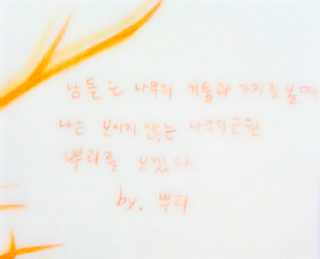 남들은 나무의 기둥과 가지를 볼때
나는 보이지 않는 나무의 근원
뿌리를 보겠다.
by. 뿌리